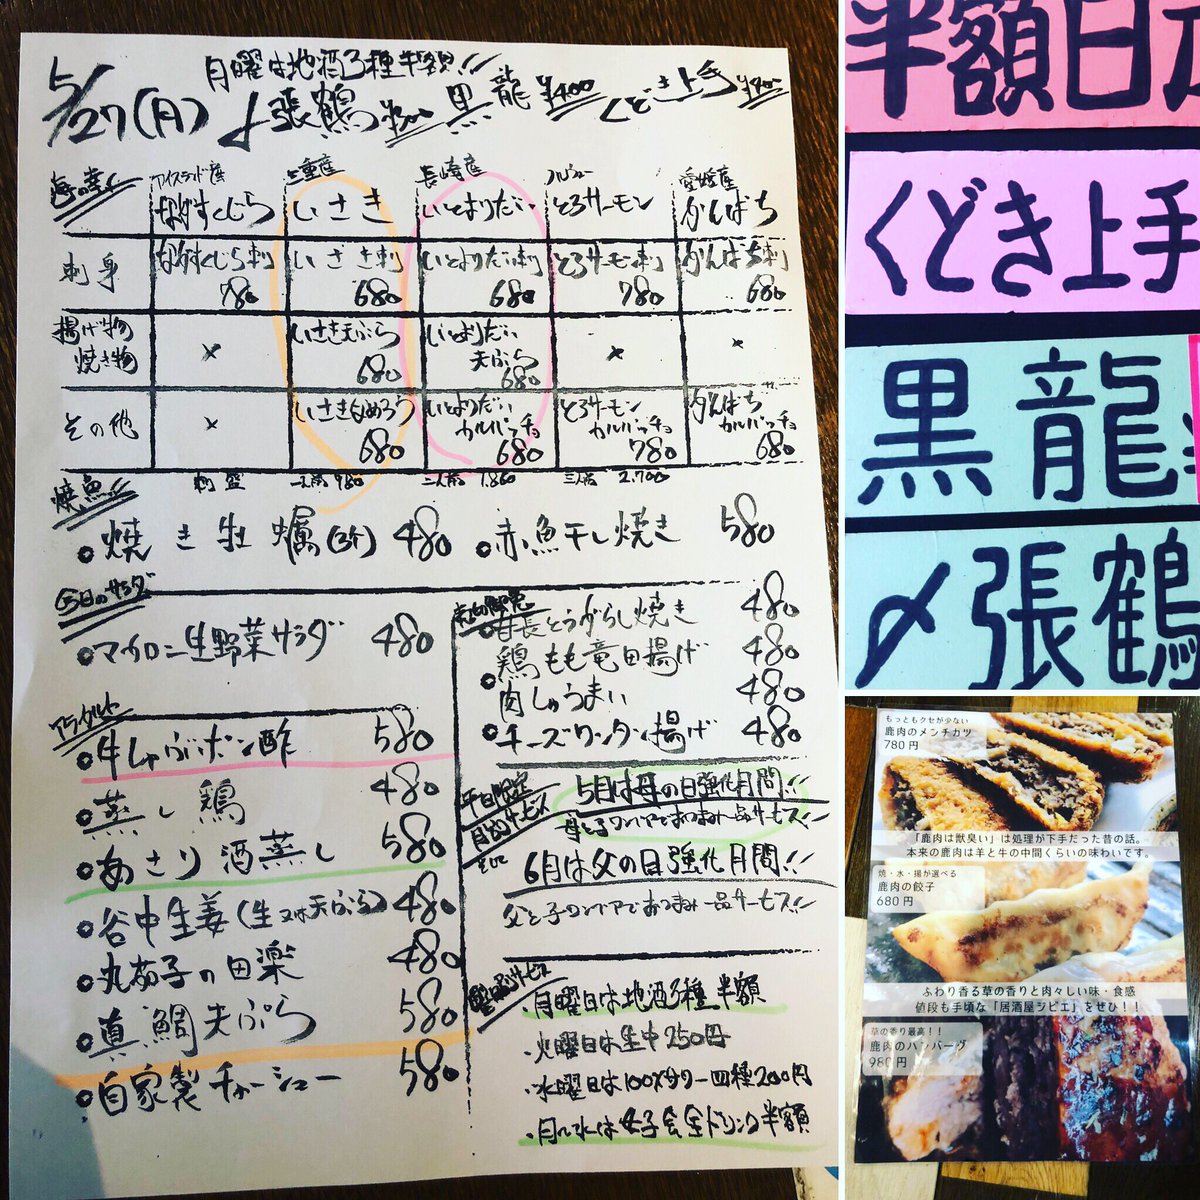 月曜は地酒3種半額!!
5/27(月) 〆張鶴 ¥300 黒龍 ¥400 くどき上手 ¥400
海の幸
アイスランド産 三重産 長崎産 ノルウェー 愛媛産
ながすくじら いさき いとよりだい とろサーモン かんぱち
刺身 ながすくじら刺 780 いさき刺 680 いとよりだい刺 680 とろサーモン刺 780 かんぱち刺 680
揚げ物
焼き物 × いさき天ぷら 680 いとよりだい天ぷら 680 × ×
その他 × いさきなめろう 680 いとよりだいカルパッチョ 680 とろサーモンカルパッチョ 780 かんぱちカルパッチョ 680
刺盛 一人前 980 二人前 1.860 三人前 2.700
焼魚
・焼き牡蠣(3ケ) 480 ・赤魚干し焼き 580
今日のサラダ
・マカロニ生野菜サラダ 480
・牛しゃぶポン酢 580
・蒸し鶏 480
・あさり酒蒸し 580
・谷中生姜(生又は天ぷら) 480
・丸茄子の田楽 480
・真鯛天ぷら 580
・自家製チャーシュー 580
・甘長とうがらし焼き 480
・鶏もも竜田揚げ 480
肉しゅうまい 480
・チーズワンタン揚げ 480
平日限定
月的サービス
5月は母の日強化月間!!
母と子ワンペアでおつまみ一品サービス!!
6月は父の日強化月間!!
父と子ワンペアでおつまみ一品サービス!!
曜日別サービス
・月曜日は地酒3種半額
・火曜日は生中250円
・水曜日は100%サワー四種200円
・月〜水は女子会全ドリンク半額
半額日本
くどき上手
黒龍
〆張鶴
もっともクセが少ない
鹿肉のメンチカツ
780円
「鹿肉は獣臭い」は処理が下手だった昔の話。
本来の鹿肉は羊と牛の中間くらいの味わいです。
焼・水・揚が選べる
鹿肉の餃子
680円
ふわり香る草の香りと肉々しい味・食感
値段も手頃な「居酒屋ジビエ」をぜひ！！
草の香り最高！！
鹿肉のハンバーグ
980円